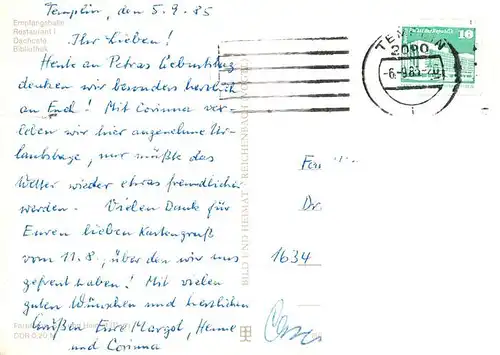 Templin, den 5.9.85
Empfangshalle
Restaurant I
Dachcafé
Bibliothek
Ihr Lieben!
Heute an Petras Geburtstag
denken wir besonders herzlich
an Euch! Mit Corinna ver-
leben wir hier angenehme Ur-
laubstage, nur müßte das
Wetter wieder etwas freundlicher
werden. Vielen Dank für
Euren lieben Kartengruß
vom 11.8., über den wir uns
gefreut haben! Mit vielen
guten Wünschen und herzlichen
Grüßen Eure Margot, Henne
und Corinna
DDR 0,20 M
BILD UND HEIMAT REICHENBACH
TEMPLIN
2090
-6.-9.85-
10
Fam
Dr.
1634